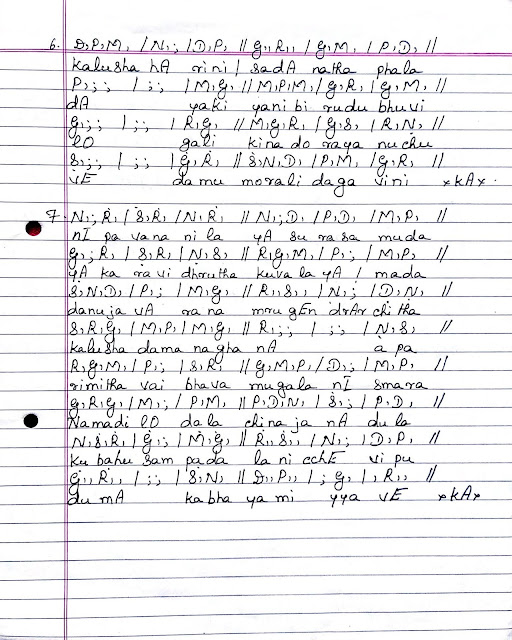 6. D,P,M, / N,; / D,P, // G,,R,, / G,M, / P,D, //
Kalusha hA rini / sadA natha phala
P,;; / ;; / M,G, // M,P,M, / G,R, / G,M, //
dA yaki yani bi rudu bhuvi
G,;; / ;; / R,G, // M,G,R, / G,S, / R,N, //
lO gali kina do raya nuchu
S,;; / ;; / G,R, // S,N,D, / P,M, / G,R, //
vE damu morali daga vini *kA*
7. N,;R, / S,R, / N,R, // N,;D, / P,D, / M,P, //
nI pa vana ni la yA su ra sa muda
G,;R, / S,R, / N,S, // R,G,M, / P,; / M,P, //
yA ka ra vi dhrutha kuva la yA / mada
S,N,D, / P,; / M,G, // R,,S,, / N,; / D,N, //
danuja vA ra na mrugEn drAr chitha
S,R,G, / M,P, / M,G, // R,;; / ;; / N,S, //
kalusha dama nagha nA à pa
R,G,M, / P,; / S,R, // G,M,P, / D,; / M,P, //
rimitha vai bhava mugala nI smara
G,R,G, / M,; / P,M, // P,D,N, / S,; / P,D, //
Namadi lO dala china ja nA du la
N,S,R, / G,; / M,G, // R,,S,, / N,; / D,P, //
Ku bahu sam pada la ni cchE vi pu
G,,R,, / ;; / S,N, // D,,P,, / ;G, / ,R,, //
du mA kabha ya mi yya vE *kA*